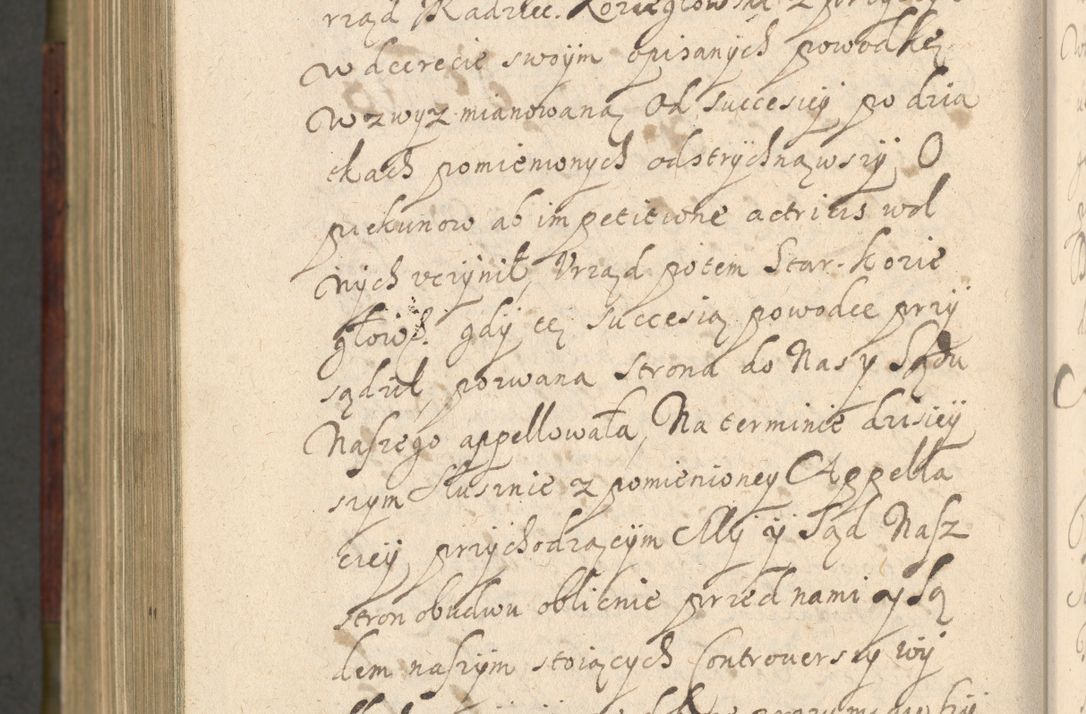 rząd Radziec. Koziegłowską z przyczyn
w decrecie swoijm opisanych powodkę
wzwyz mianowaną Od succesiej po dzia
tkach pomienionych odstrychnąwszy, O
piekunow ab impetitione actricis wol
nych vczynił, Vrząd potem Star. Kozie
głows. gdy tę succesią powodce przy
sądził, pozwana strona do Nas y Sądu
Naszego appellowała, Na terminie dzisiey
szym słusznie z pomienioney Appella
cyey przychodzącym My y Sąd Nasz
stron obudwu oblicnie przed nami y Są
dem naszym stoiących Controversiy wy